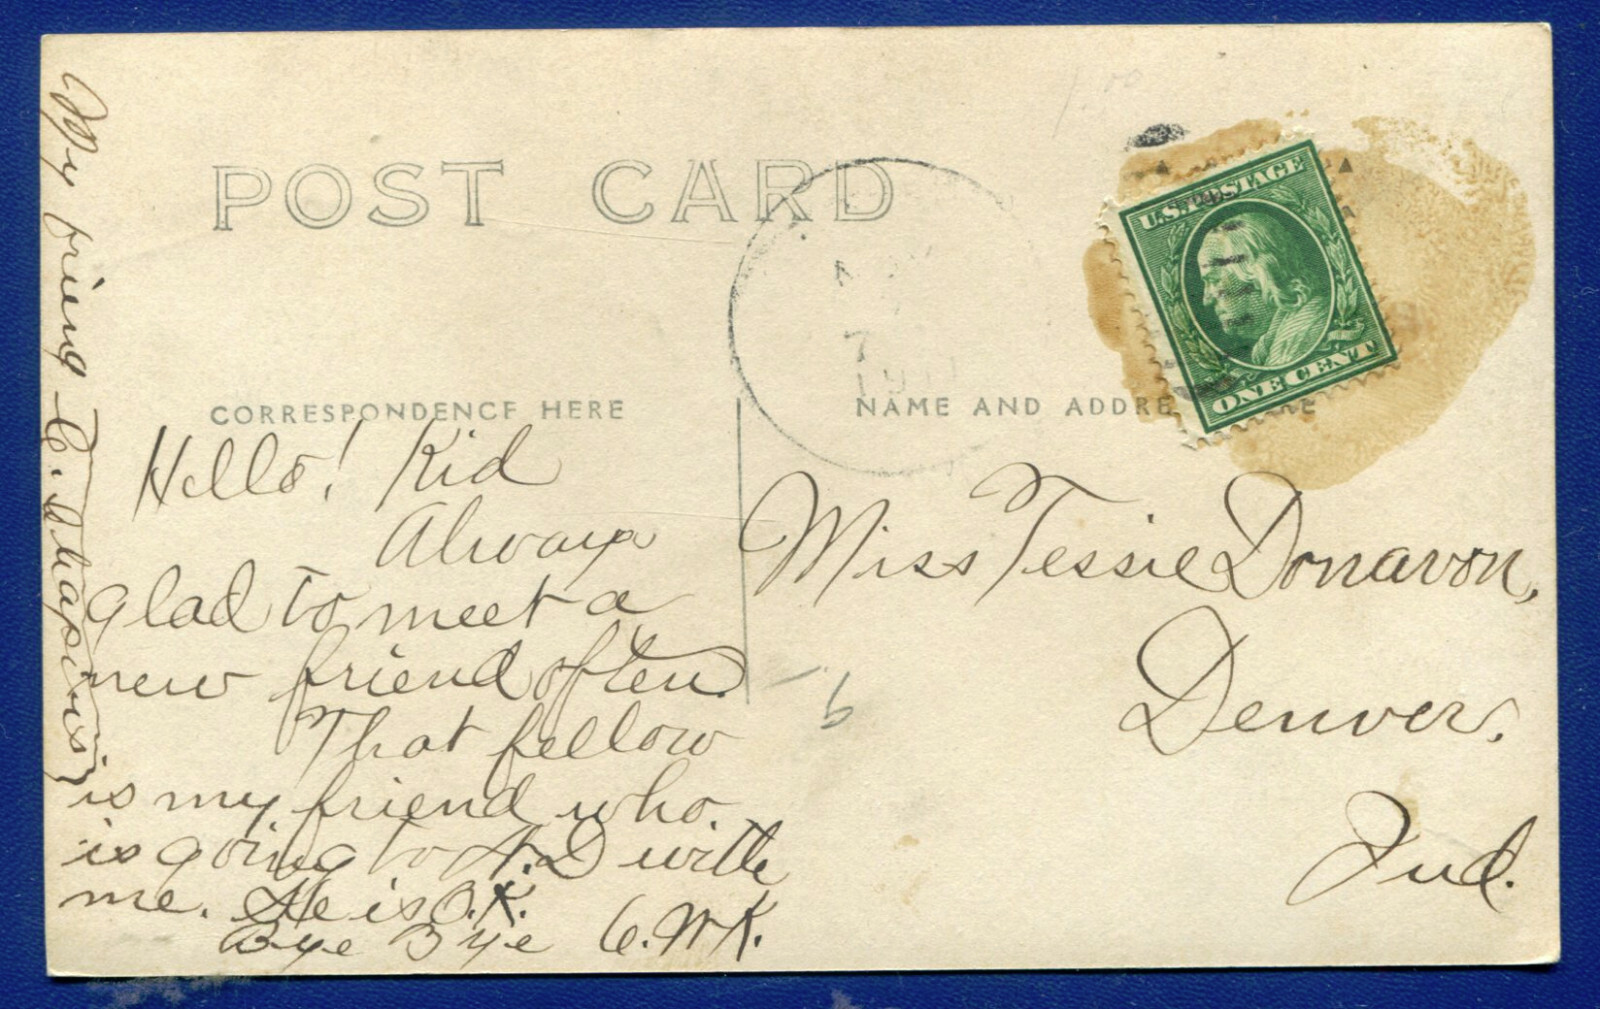 POST CARD
1.00
U.S. POSTAGE
ONE CENT
NOV
7
1911
CORRESPONDENCE HERE
NAME AND ADDRE
Hello! Kid
Always
glad to meet a
new friend often.
That fellow
is my friend who
is going to N.D with
me. He is O.K.
Bye Bye C.W.K.
My friend C.
Miss Tessie Donavon,
Denver,
Ind.